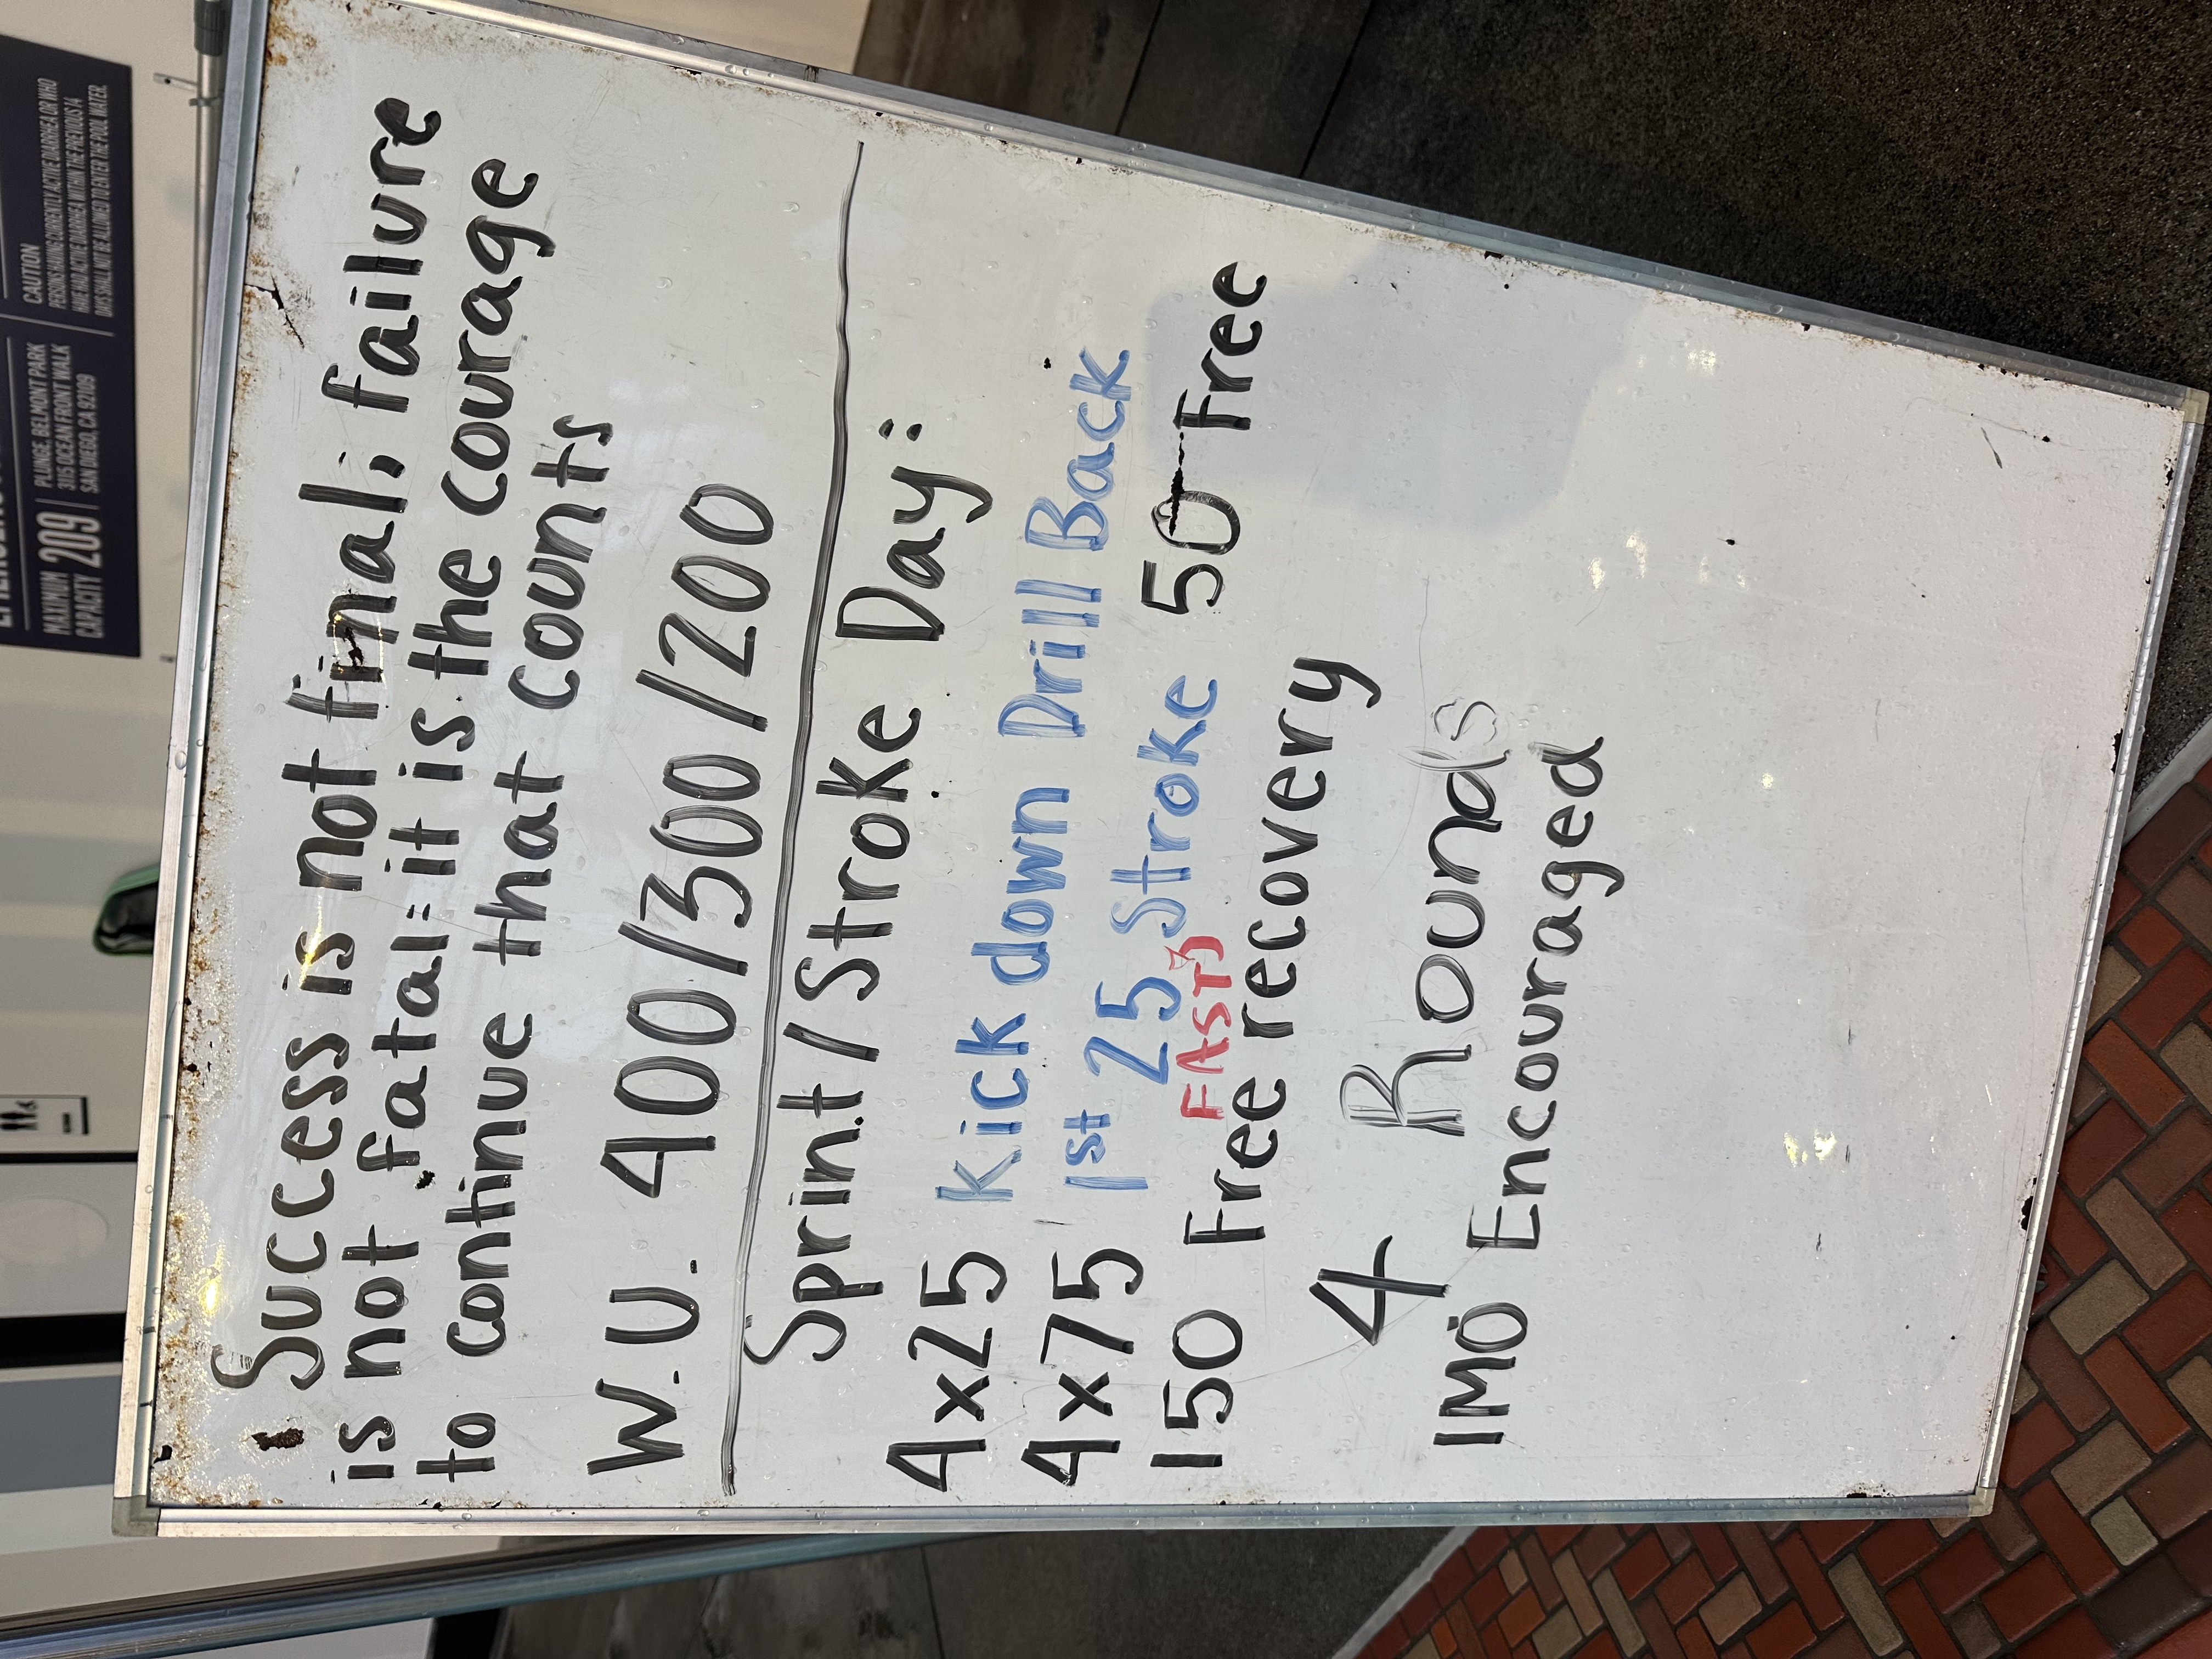 Success is not final, failure
is not fatal: it is the courage
to continue that counts
W.U. 400/300/200
Sprint/Stroke Day:
4x25 Kick down Drill Back
4x75 1st 25 Stroke 50 Free
FAST
150 Free recovery
4 Rounds
IMO Encouraged
MAXIMUM
CAPACITY
209
PLUNGE, BELMONT PARK
3115 OCEAN FRONT WALK
SAN DIEGO, CA 92109
CAUTION
PERSONS HAVING CURRENTLY ACTIVE DIARRHEA OR WHO
HAVE HAD ACTIVE DIARRHEA WITHIN THE PREVIOUS 14
DAYS SHALL NOT BE ALLOWED TO ENTER THE POOL WATER.